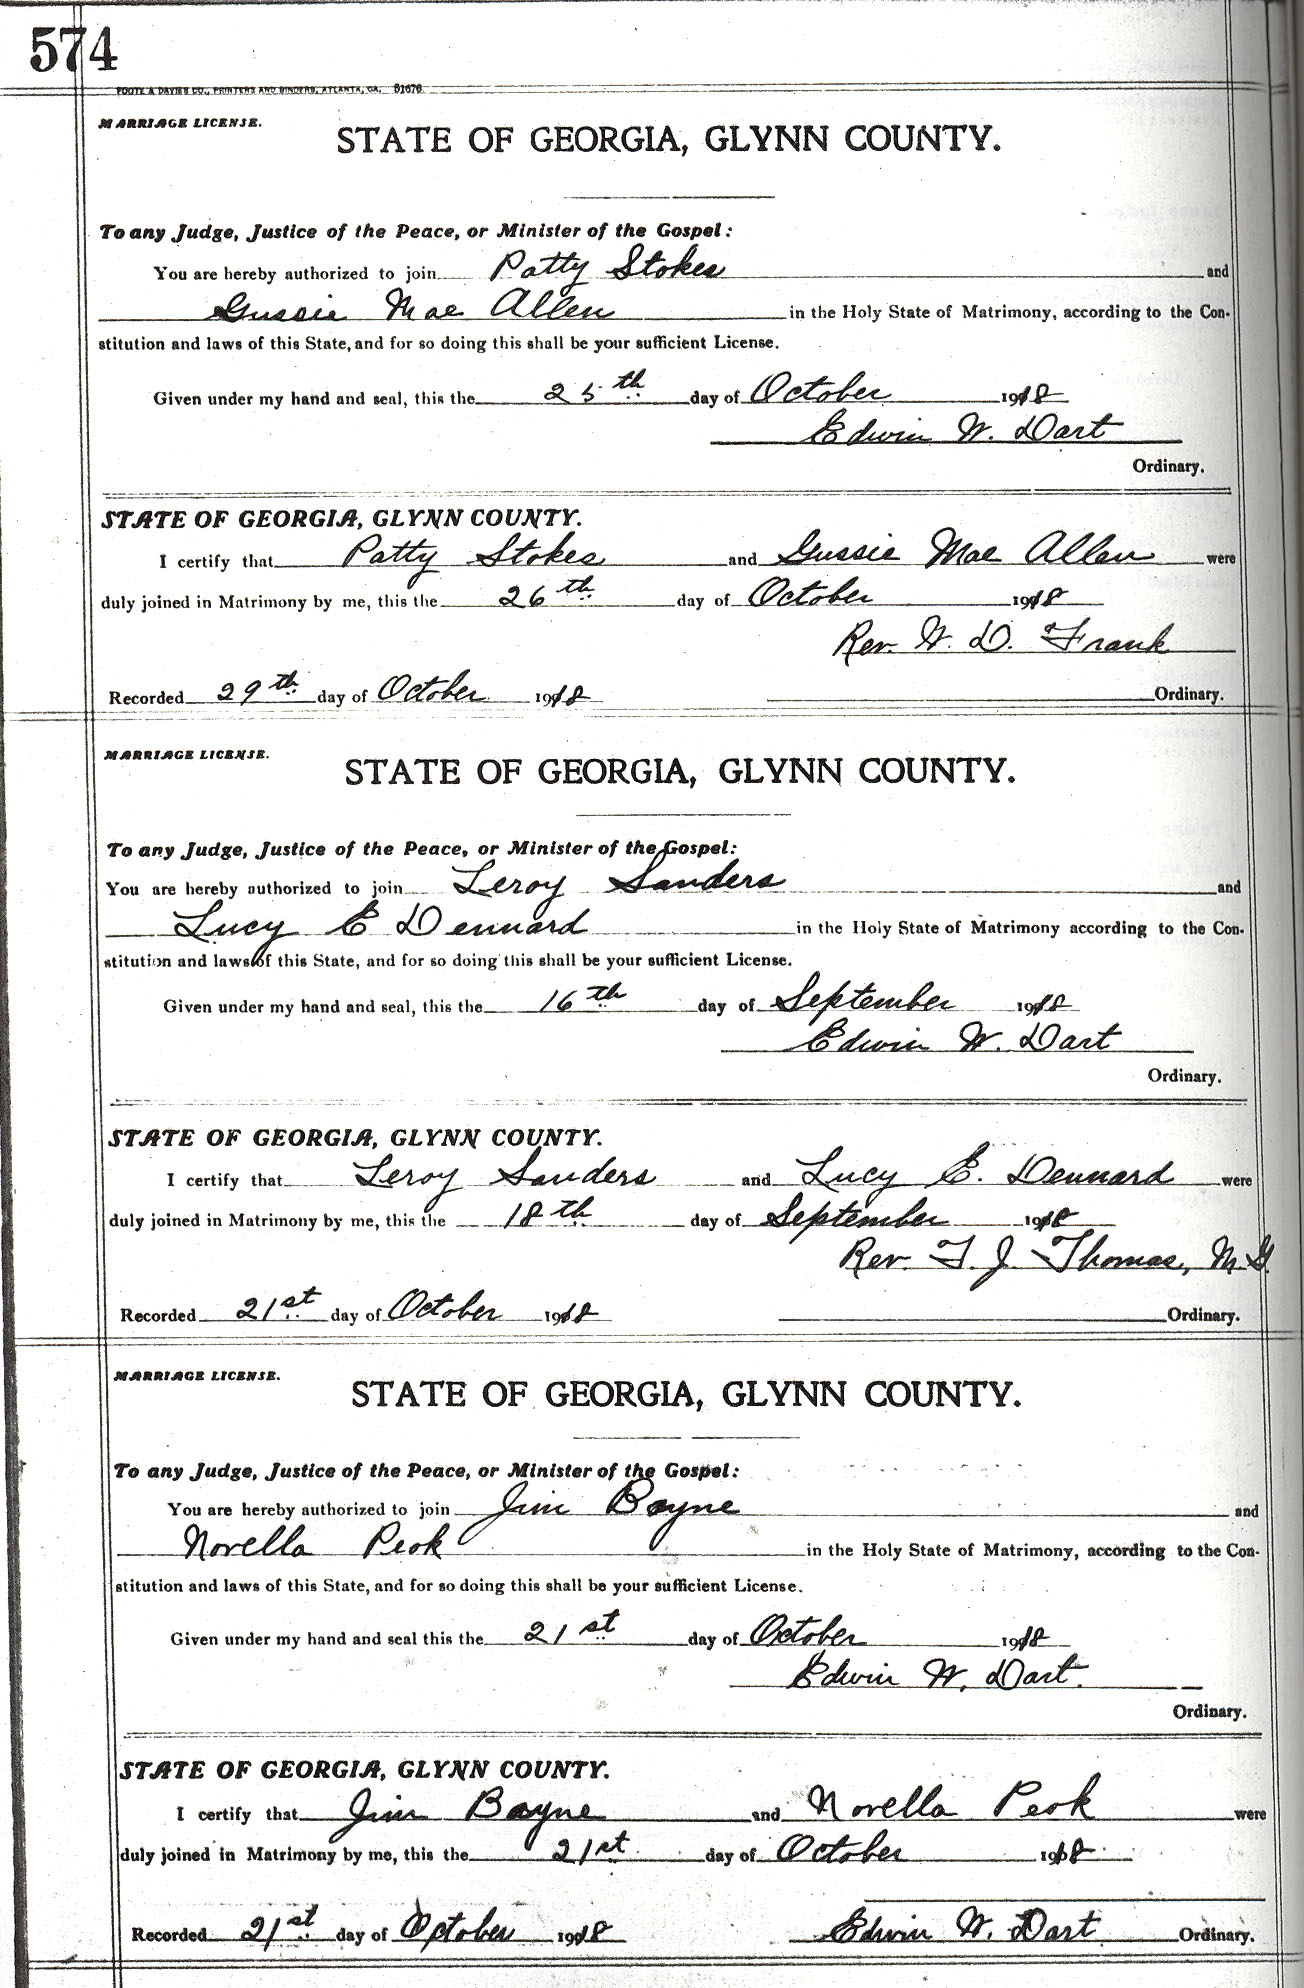 574
FOOTE & DAVIES CO., PRINTERS AND BINDERS, ATLANTA, GA. 81676
MARRIAGE LICENSE.
STATE OF GEORGIA, GLYNN COUNTY.
To any Judge, Justice of the Peace, or Minister of the Gospel:
You are hereby authorized to join Patty Stokes and
Gussie Mae Allen in the Holy State of Matrimony, according to the Con-
stitution and laws of this State, and for so doing this shall be your sufficient License.
Given under my hand and seal, this the 25th day of October 1918
Edwin W. Dart
Ordinary.
STATE OF GEORGIA, GLYNN COUNTY.
I certify that Patty Stokes and Gussie Mae Allen were
duly joined in Matrimony by me, this the 26th day of October 1918
Rev. W. D. Frank
Recorded 29th day of October 1918 Ordinary.
MARRIAGE LICENSE.
STATE OF GEORGIA, GLYNN COUNTY.
To any Judge, Justice of the Peace, or Minister of the Gospel:
You are hereby authorized to join Leroy Sanders and
Lucy E Dennard in the Holy State of Matrimony according to the Con-
stitution and laws of this State, and for so doing this shall be your sufficient License.
Given under my hand and seal, this the 16th day of September 1918
Edwin W. Dart
Ordinary.
STATE OF GEORGIA, GLYNN COUNTY.
I certify that Leroy Sanders and Lucy E. Dennard were
duly joined in Matrimony by me, this the 18th day of September 1918
Rev. F. J. Thomas, M.G.
Recorded 21st day of October 1918 Ordinary.
MARRIAGE LICENSE.
STATE OF GEORGIA, GLYNN COUNTY.
To any Judge, Justice of the Peace, or Minister of the Gospel:
You are hereby authorized to join Jim Bayne and
Norella Peok in the Holy State of Matrimony, according to the Con-
stitution and laws of this State, and for so doing this shall be your sufficient License.
Given under my hand and seal this the 21st day of October 1918
Edwin W. Dart.
Ordinary.
STATE OF GEORGIA, GLYNN COUNTY.
I certify that Jim Bayne and Norella Peok were
duly joined in Matrimony by me, this the 21st day of October 1918
Recorded 21st day of October 1918 Edwin W. Dart Ordinary.